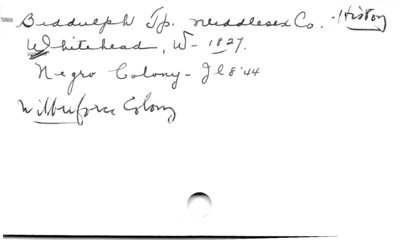 Biddulph Tp. Middlesex Co. - History
Whitehead, W - 1827.
Negro Colony - Jl 8 '44
Wilberforce Colony